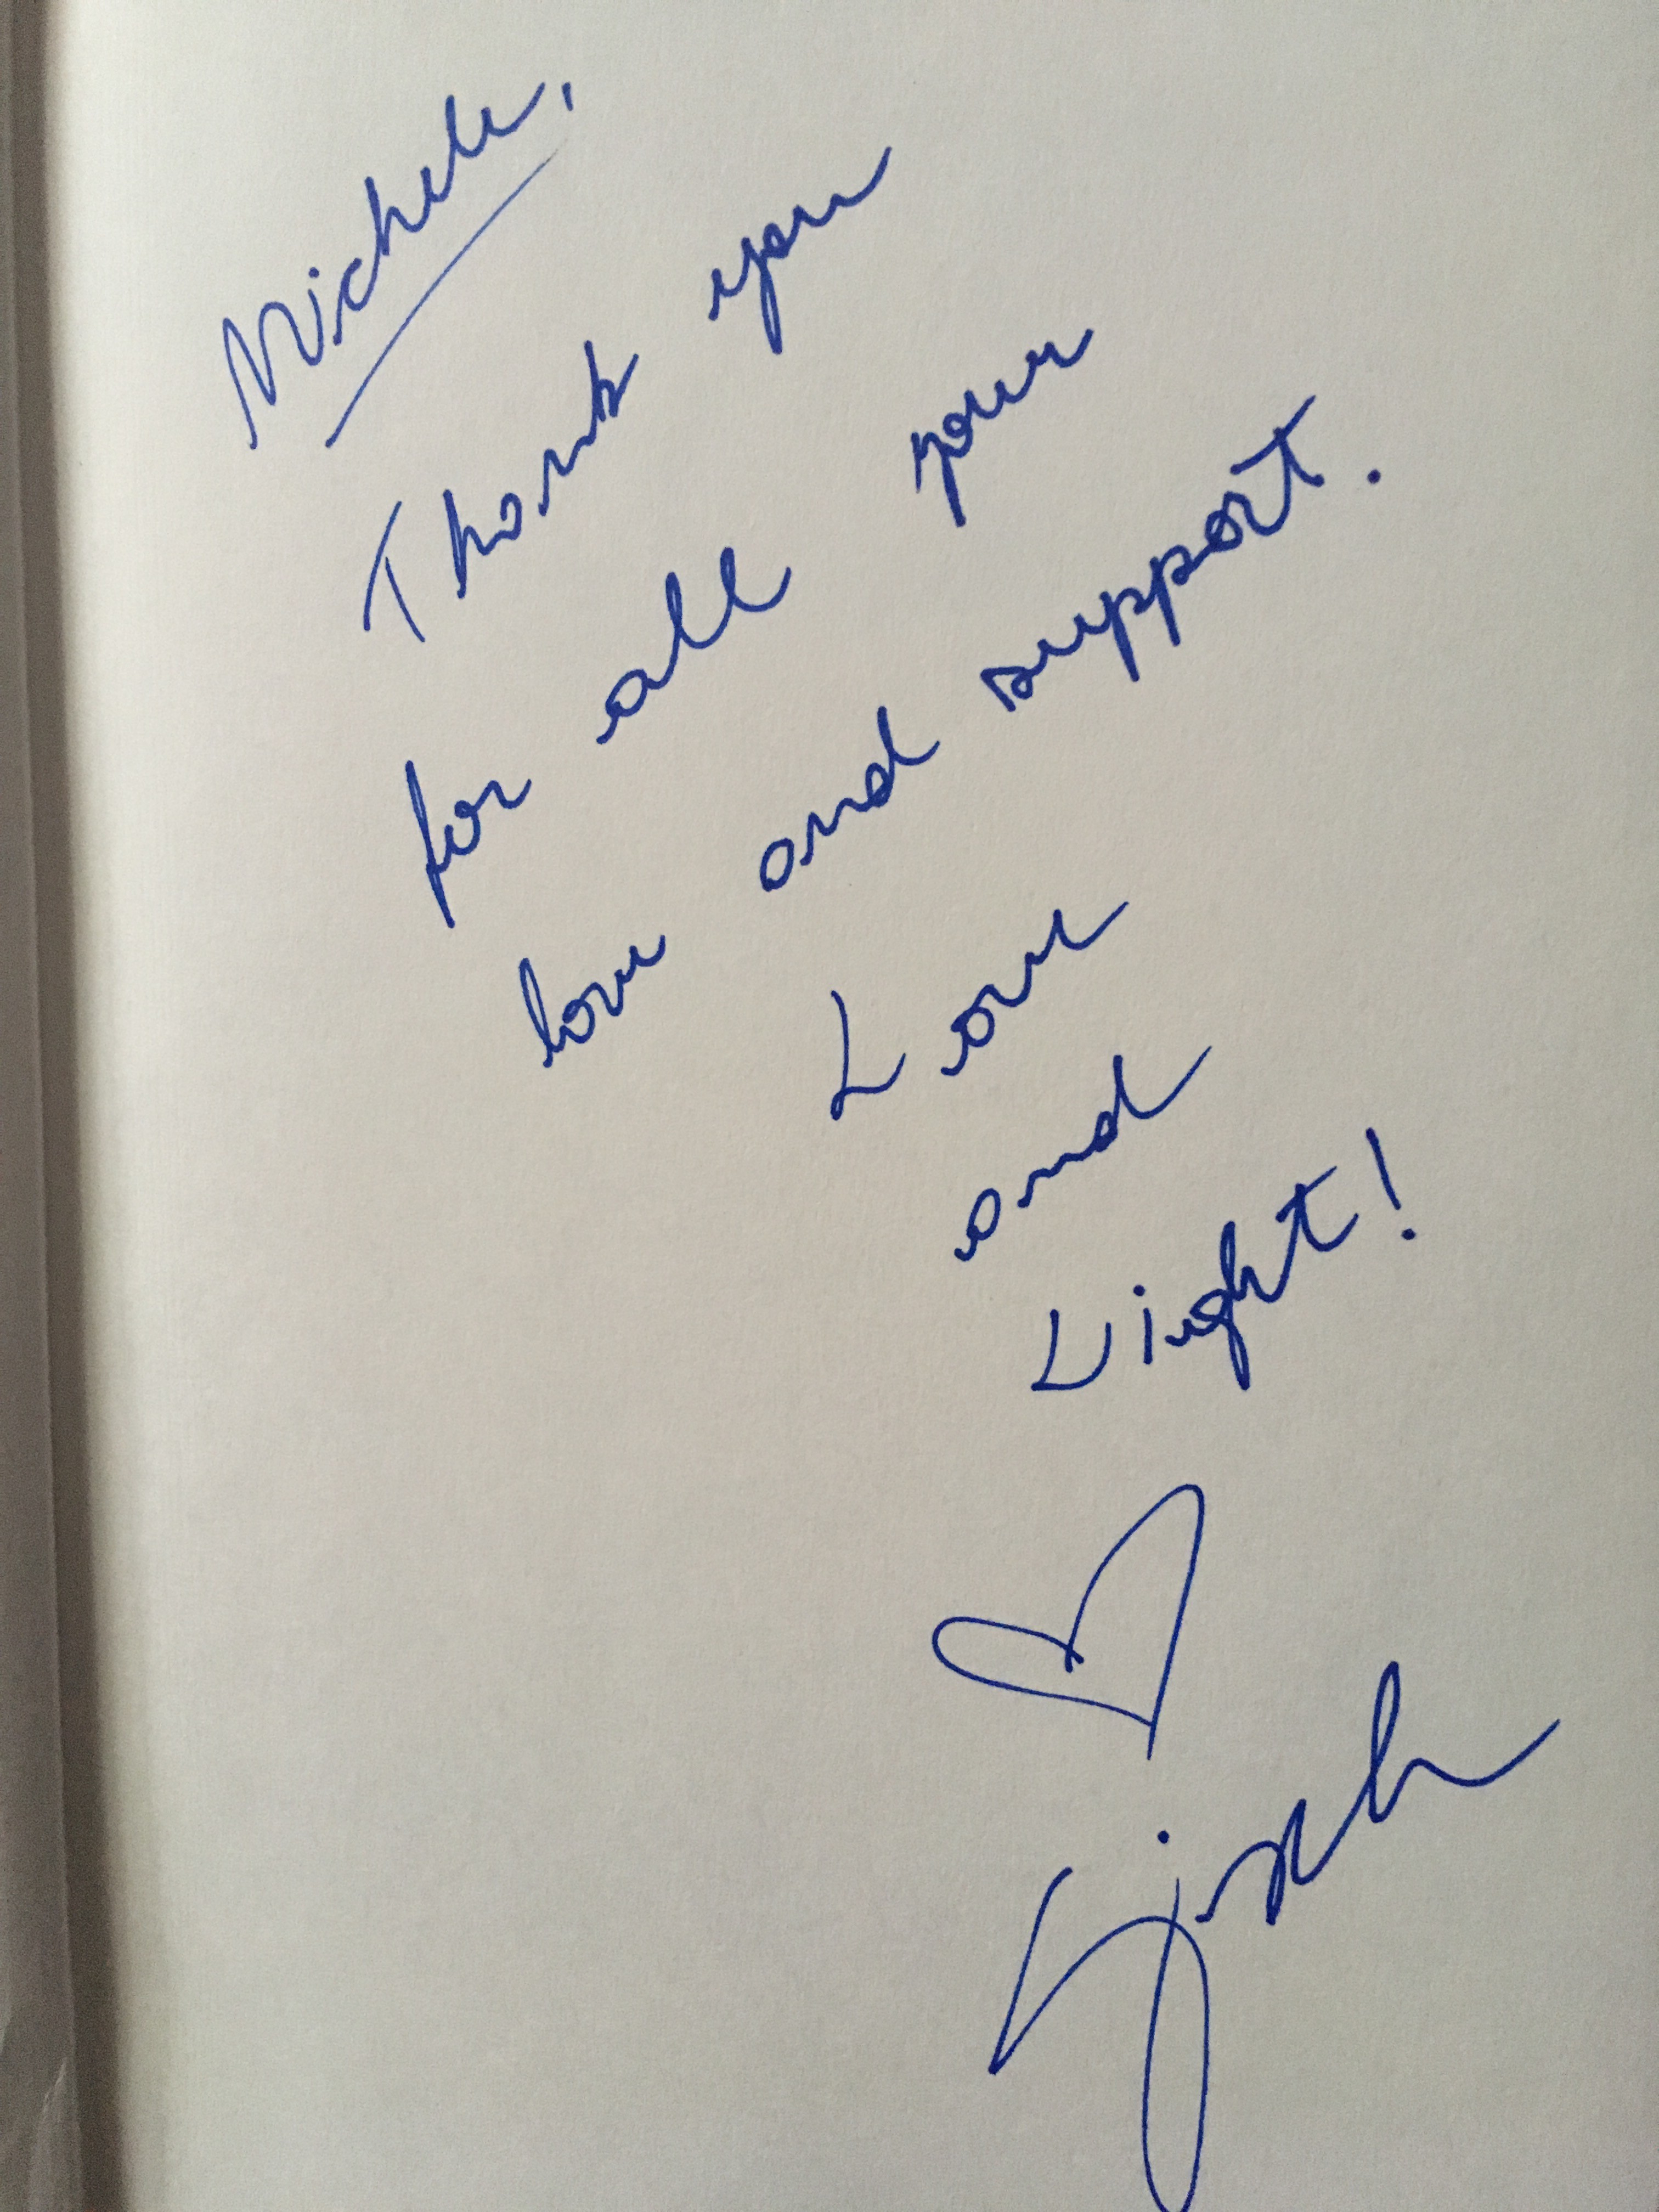 Michele,
Thank you
for all your
love and support.
Love
and
Light!